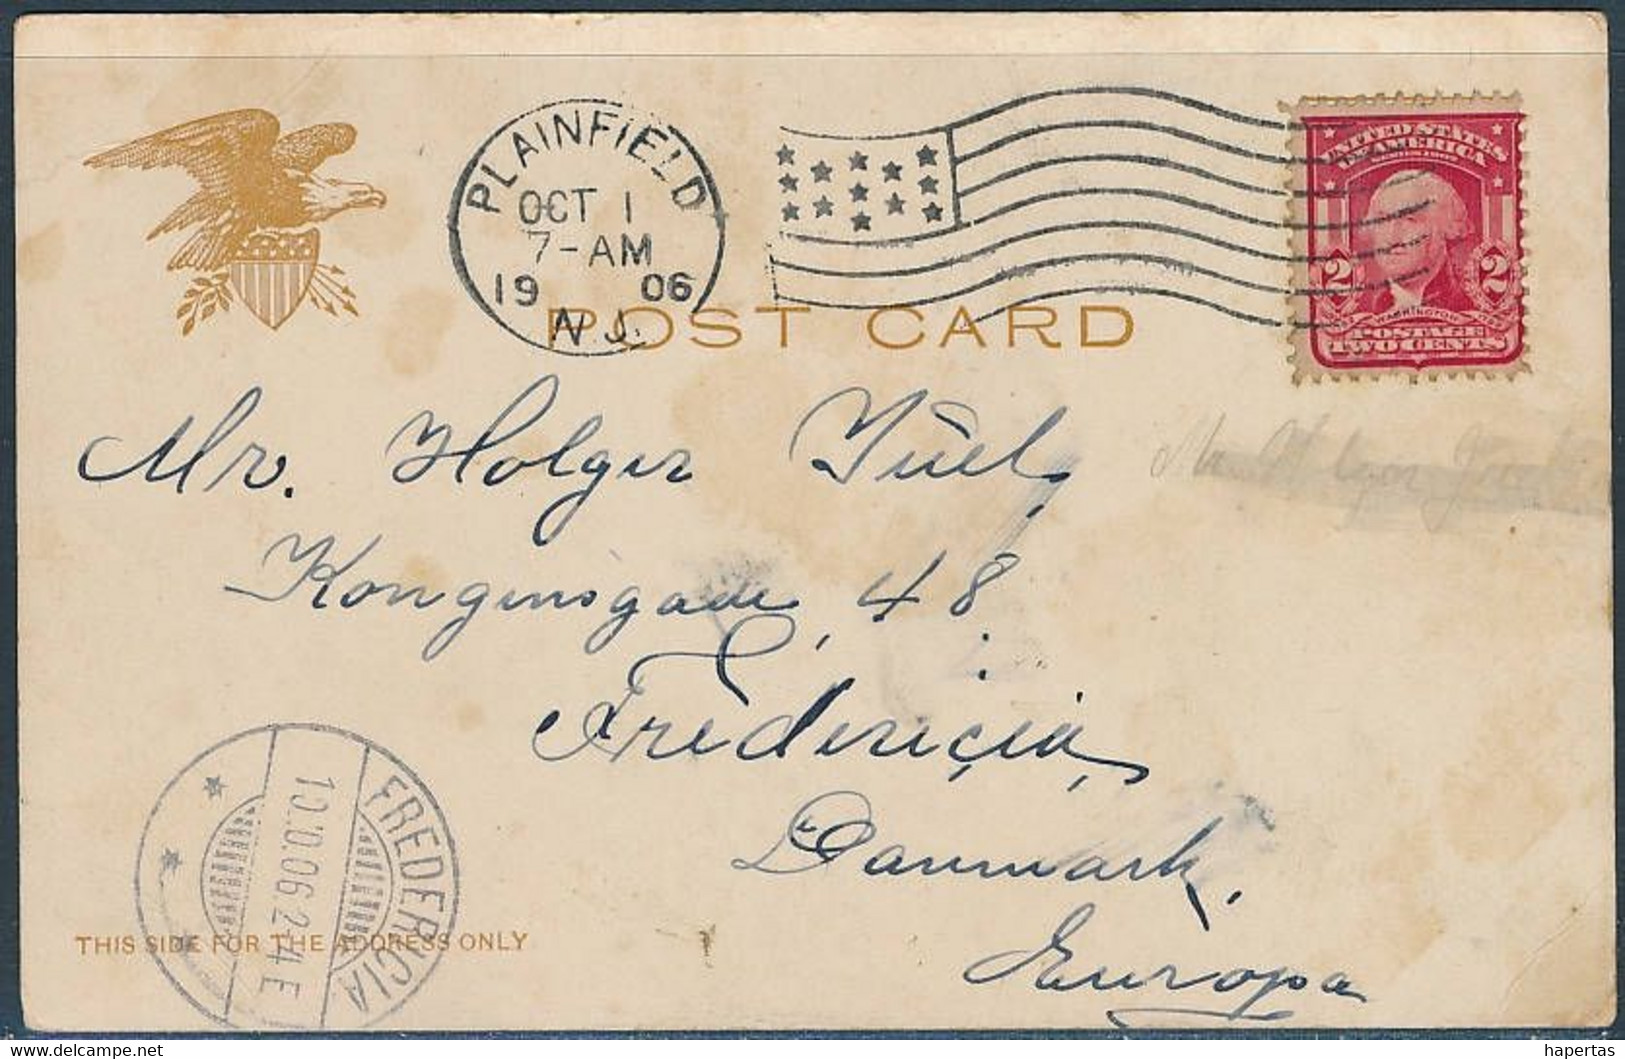 PLAINFIELD
OCT 1
7-AM
19 06
N.J.
UNITED STATES
OF AMERICA
SERIES 1902
2 2
WASHINGTON
POSTAGE
TWO CENTS
POST CARD
Mr. Holger Juel,
Mr Holger Juel
Kongensgade, 48.
Fredericia,
Danmark,
Europa
FREDERICIA
10.10.06.2-4 E
THIS SIDE FOR THE ADDRESS ONLY
www.delcampe.net
hapertas